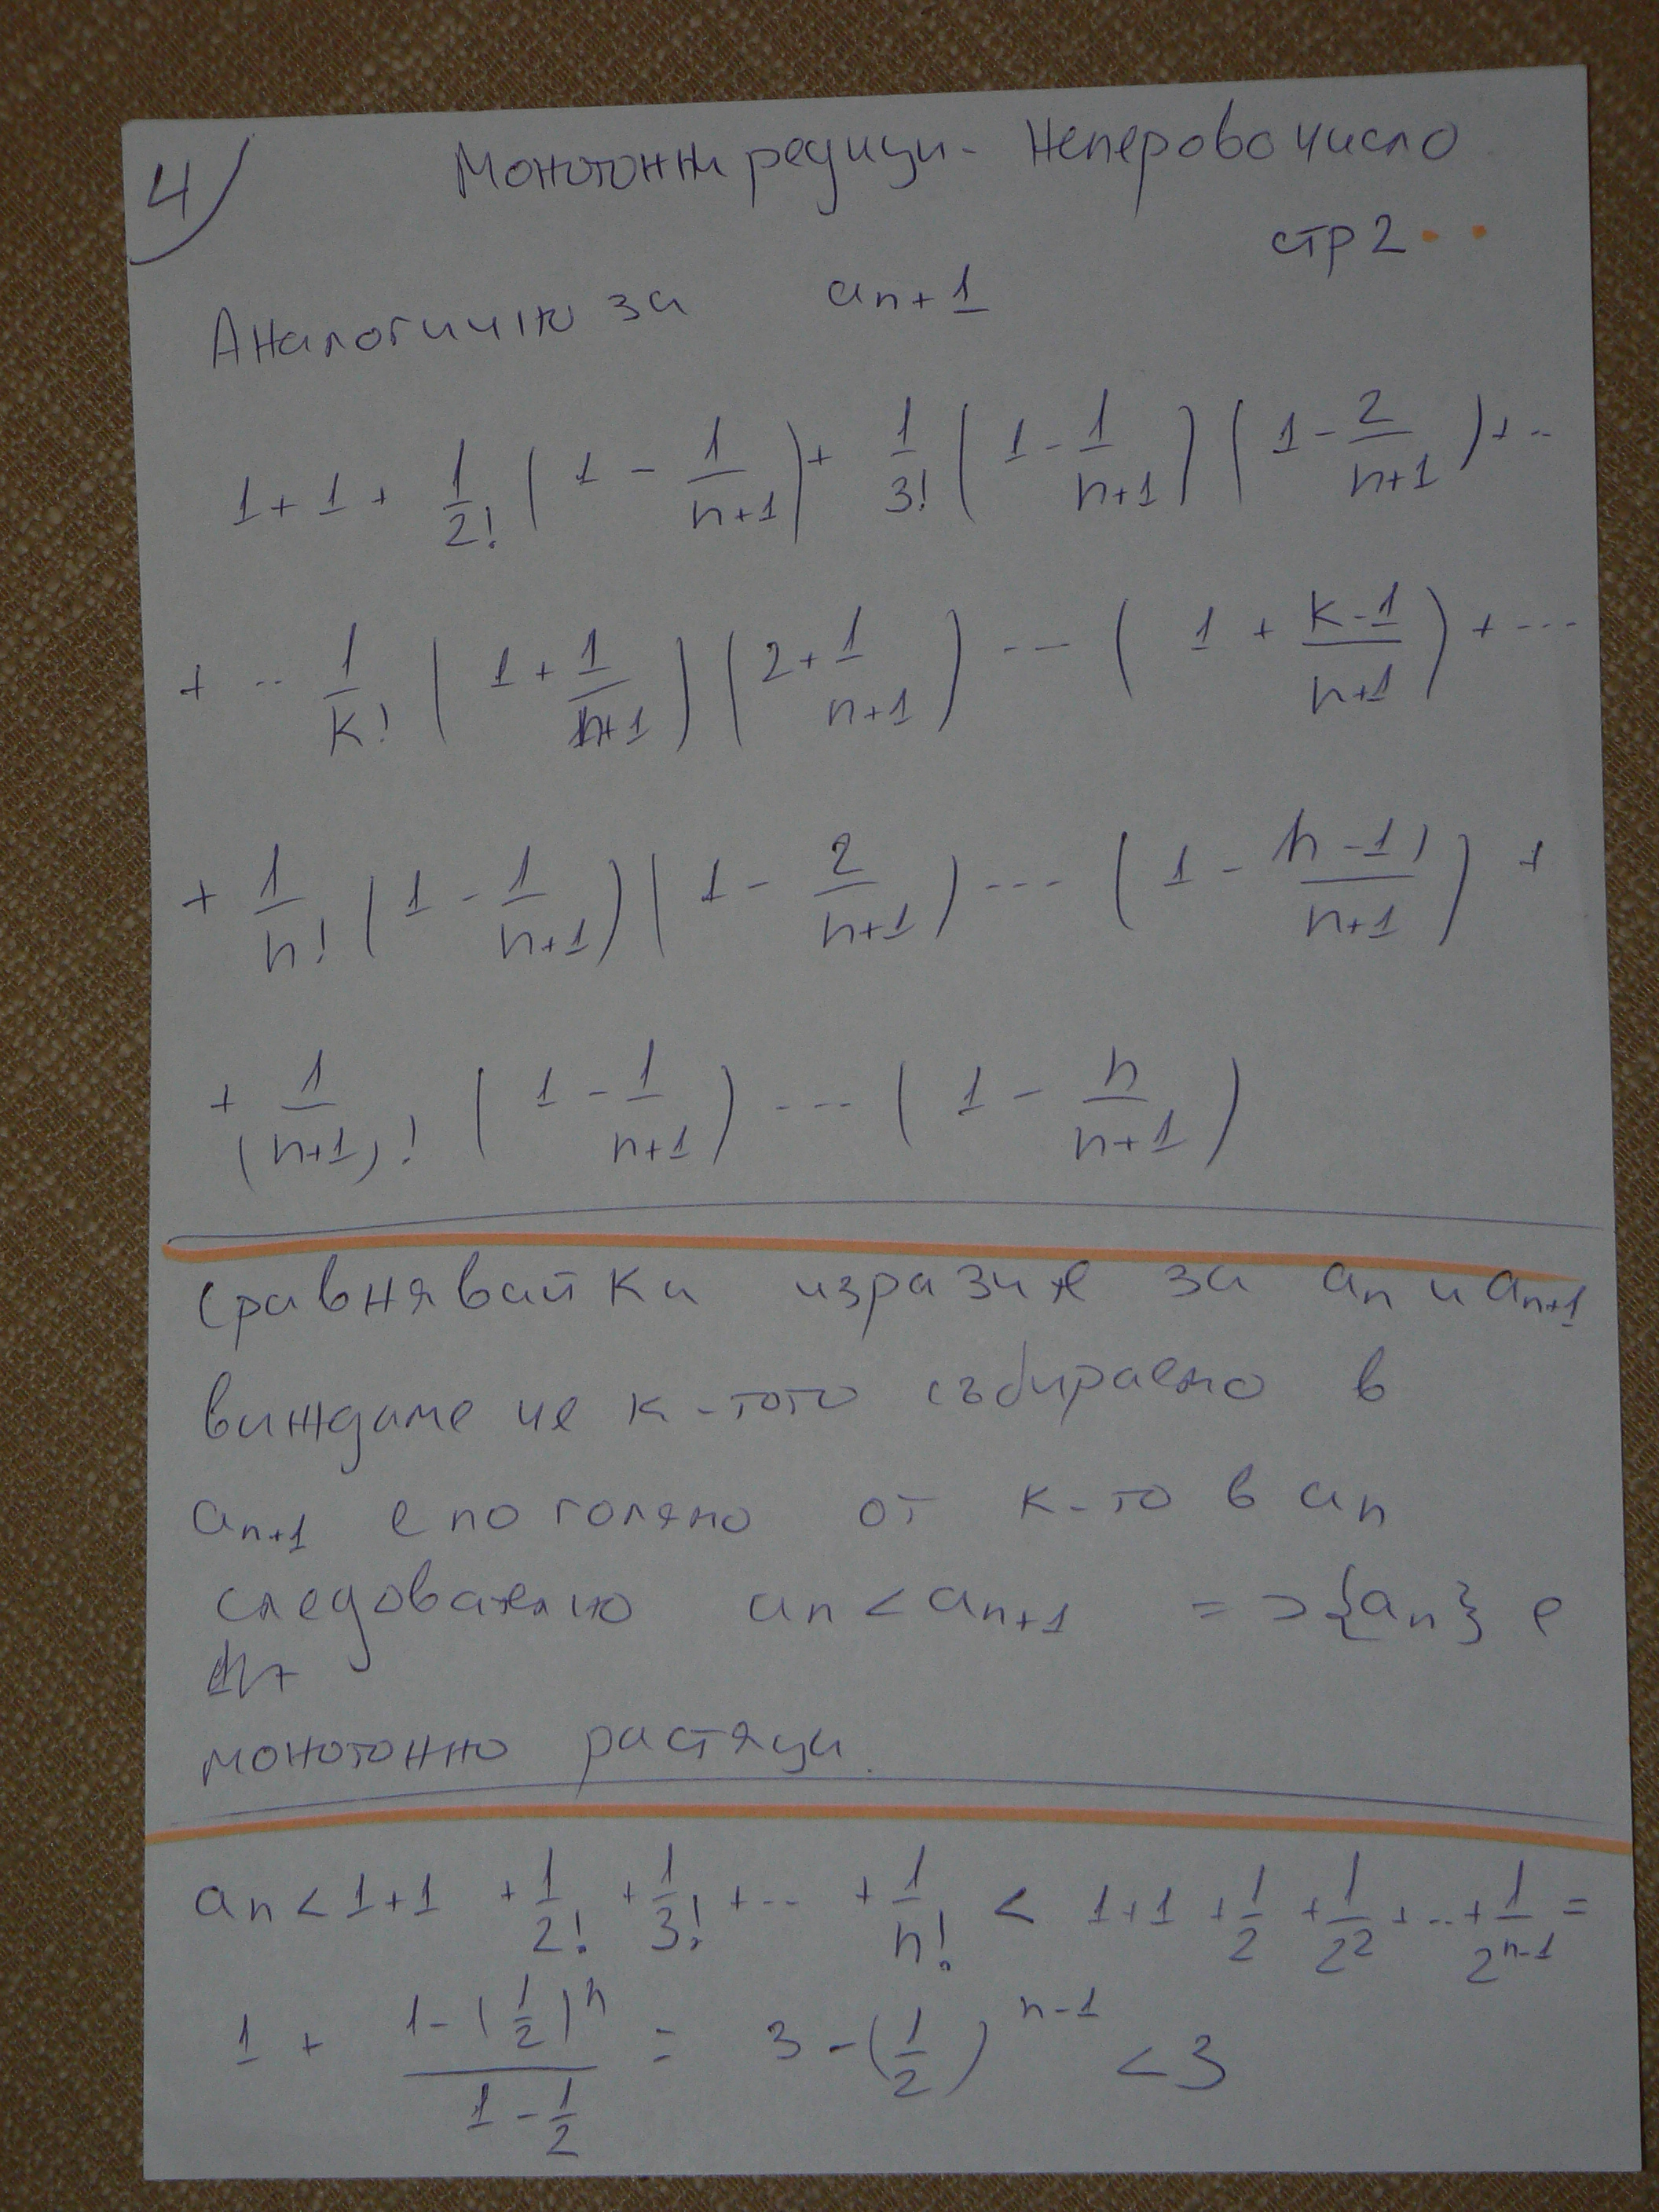 4) Монотонни редици - Неперово число
стр 2
Аналогично за a_{n+1}
1 + 1 + \frac{1}{2!} ( 1 - \frac{1}{n+1} ) + \frac{1}{3!} ( 1 - \frac{1}{n+1} ) ( 1 - \frac{2}{n+1} ) + ..
+ .. \frac{1}{k!} ( 1 + \frac{1}{n+1} ) ( 2 + \frac{1}{n+1} ) --- ( 1 + \frac{k-1}{n+1} ) + ---
+ \frac{1}{n!} ( 1 - \frac{1}{n+1} ) ( 1 - \frac{2}{n+1} ) --- ( 1 - \frac{n-1)}{n+1} ) +
+ \frac{1}{(n+1)!} ( 1 - \frac{1}{n+1} ) --- ( 1 - \frac{n}{n+1} )
Сравнявайки изразите за a_n и a_{n+1}
виждаме че к-тото събираемо в
a_{n+1} е по голямо от к-то в a_n
следователно a_n < a_{n+1} => {a_n} е
монотонно растящи.
a_n < 1+1 + \frac{1}{2!} + \frac{1}{3!} + .. + \frac{1}{n!} < 1+1 + \frac{1}{2} + \frac{1}{2^2} + .. + \frac{1}{2^{n-1}} =
1 + \frac{1-(\frac{1}{2})^n}{1-\frac{1}{2}} = 3 - (\frac{1}{2})^{n-1} < 3